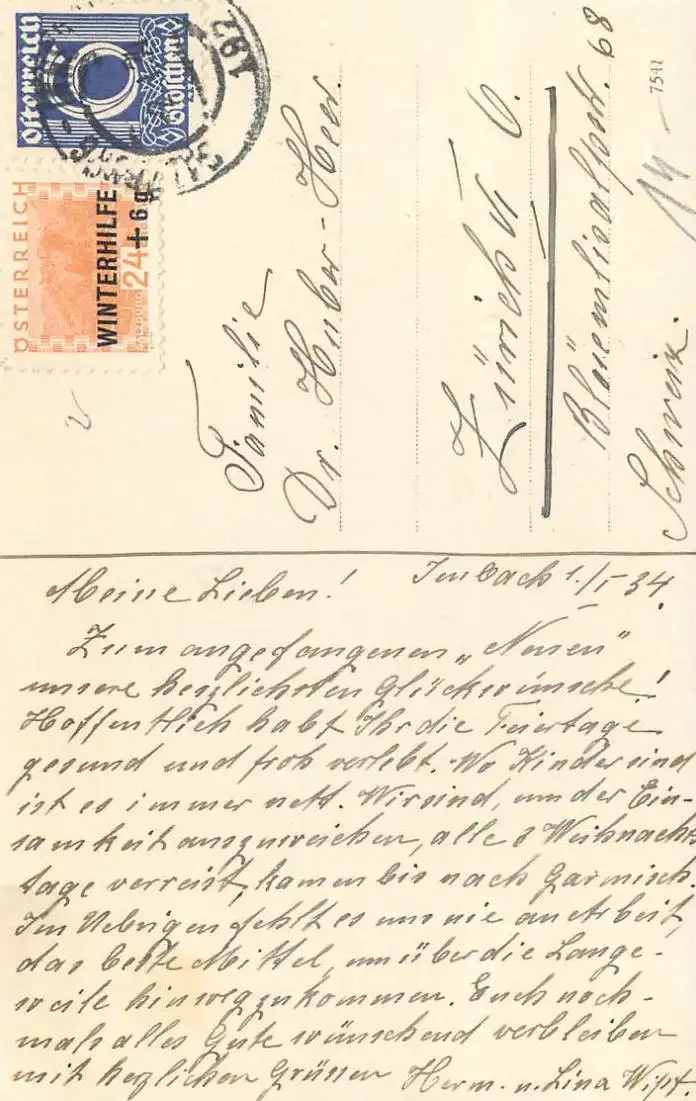 Österreich
ÖSTERREICH
WINTERHILFE
+6g
24
SALZBURG
Familie
Dr. Huber-Heer.
Zürich 6.
Blüemlisalpstr. 68
Schweiz.
7511
Imbach 1./I 34.
Meine Lieben!
Zum angefangenen „Neuen"
unsere herzlichsten Glückwünsche!
Hoffentlich habt Ihr die Feiertage
gesund und froh verlebt. Wo Kinder sind
ist es immer nett. Wir sind, um der Ein-
samkeit auszuweichen, alle 3 Weihnachts
tage verreist, kamen bis nach Garmisch.
Im Uebrigen fehlt es uns nie an Arbeit,
das beste Mittel, um über die Lange-
weile hinwegzukommen. Euch noch-
mals alles Gute wünschend verbleiben
mit herzlichen Grüssen Herm. u. Lina Wipf.